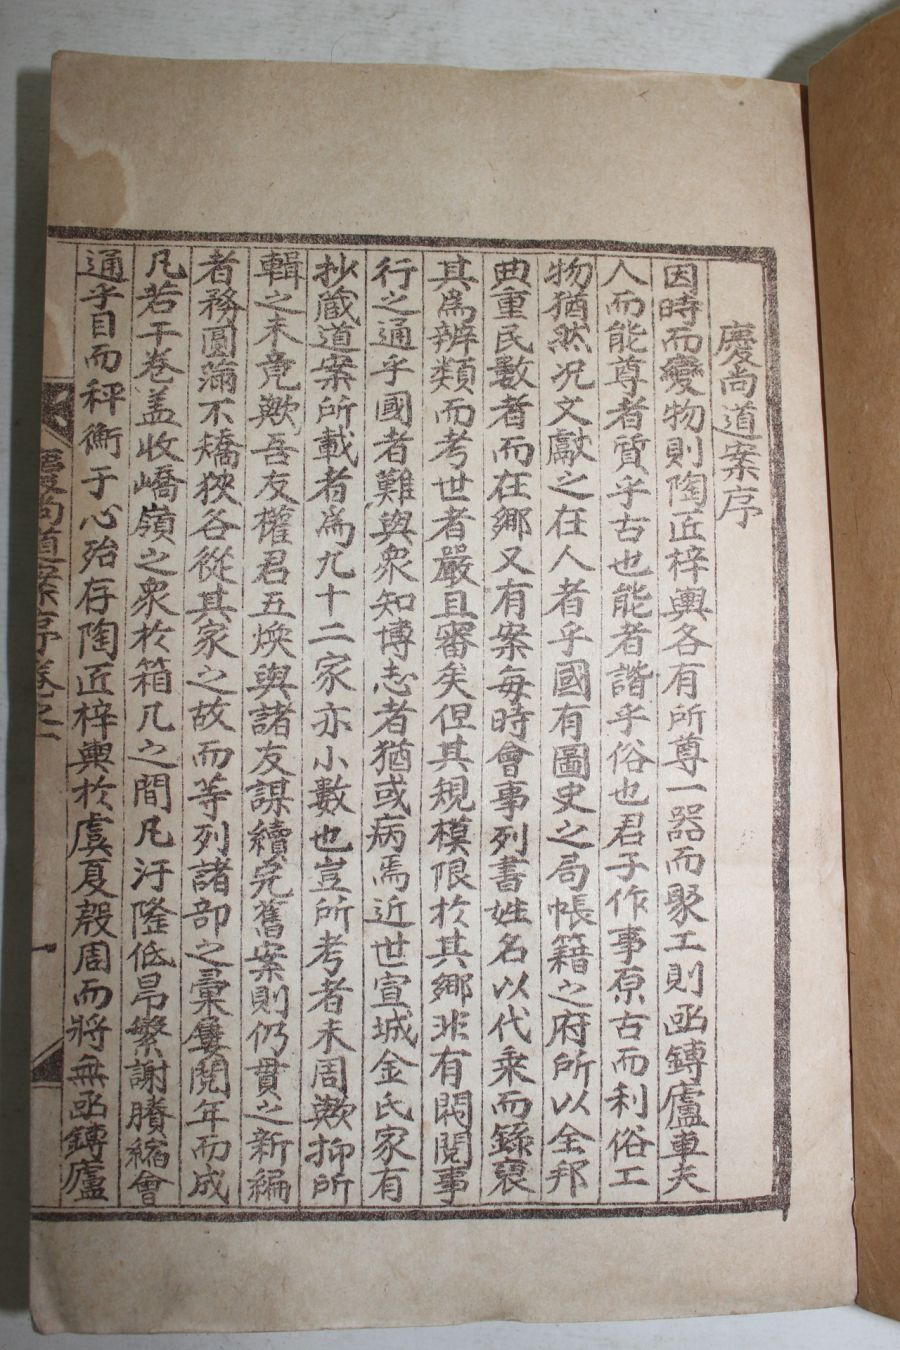 慶尚道案序
因時而變物則陶匠梓輿各有所尊一器而聚工則凾鎛廬車夫
人而能尊者質乎古也能者諧乎俗也君子作事原古而利俗工
物猶然况文獻之在人者乎國有圖史之局帳籍之府所以全邦
典重民數者而在鄉又有案每時會事列書姓名以代乘而錄裒
其爲辨類而考世者嚴且審矣但其規模限於其鄉非有閥閱事
行之通乎國者難與衆知博志者猶或病焉近世宣城金氏家有
抄蔵道案所載者爲九十二家亦小數也豈所考者未周歟抑所
輯之未竟歟吾友權君五煥與諸友謀續完舊案則仍貫之新編
者務圓滿不矯狹各從其家之故而等列諸部之彙雙閱年而成
凡若干卷盖收嶠嶺之衆於箱几之間凡汙隆低昻繁謝賸縮會
通乎目而秤衡于心殆存陶匠梓輿於虞夏殷周而將無凾鎛廬
慶尚道案序卷之一
一